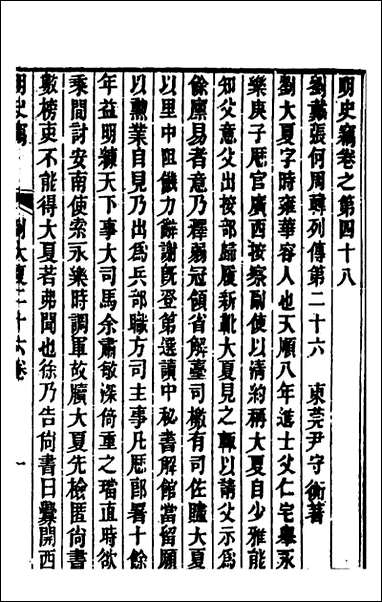 明史竊卷之第四十八
劉戴張何周韓列傳第二十六　東莞尹守衡著
劉大夏字時雍華容人也天順八年進士父仁宅舉永
樂庚子歷官廣西按察副使以清約稱大夏自少雅能
知父意父出按部歸履新靴大夏見之輒以請父示為
餘縻易者意乃釋弱冠領省解臺司檄有司佐贐大夏
以里中阻饑力辭謝既登第選讀中秘書解館當留願
以勲業自見乃出為兵部職方司主事凡歷郎署十餘
年益明練天下事大司馬余肅敏深倚重之璫直時欲
乘間討安南使索永樂時調軍故牘大夏先檢匿尚書
數榜吏不能得大夏若弗聞也徐乃告尚書曰釁開西
明史竊　劉大夏二十六卷　一